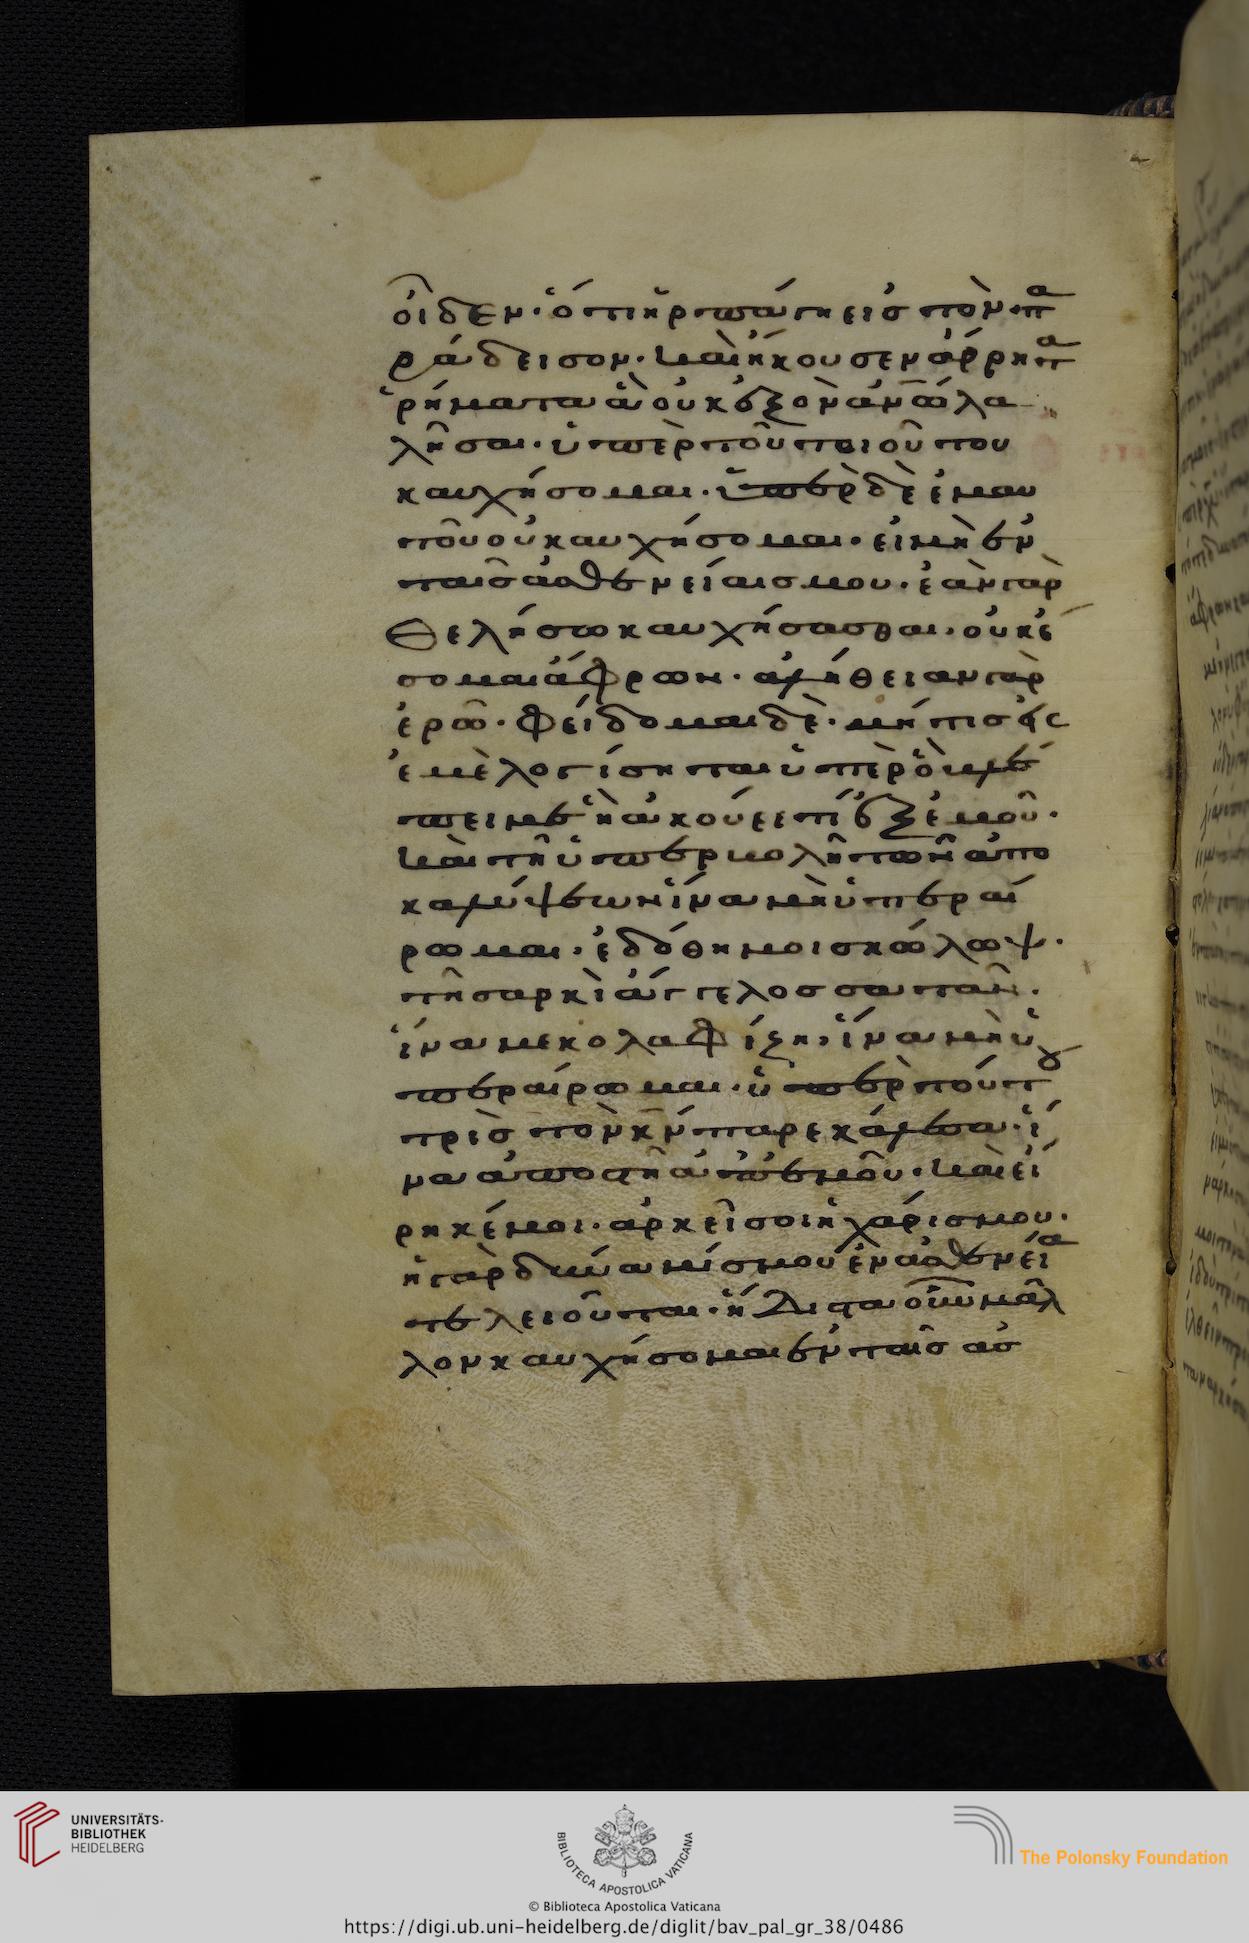 οἶδεν· ὅτι ἡρπάγη εἰς τὸν πα
ράδεισον· καὶ ἤκουσεν ἄρρητα
ῥήματα ἃ οὐκ ἐξὸν ἀνω λα
λῆσαι· ὑπὲρ τοῦ τοιούτου
καυχήσομαι· ὑπὲρ δὲ ἐμαυ
τοῦ οὐ καυχήσομαι· εἰ μὴ ἐν
ταῖς ἀσθενείαις μου· ἐὰν γὰρ
θελήσω καυχήσασθαι· οὐκ ἔ
σομαι ἄφρων· ἀλήθειαν γὰρ
ἐρῶ· φείδομαι δὲ· μή τις εἰς
ἐμὲ λογίσηται ὑπὲρ ὃ βλέ
πει με ἢ ἀκούει τί ἐξ ἐμοῦ·
καὶ τῇ ὑπερβολῇ τῶν ἀπο
καλύψεων ἵνα μὴ ὑπεραί
ρωμαι· ἐδόθη μοι σκώλωψ·
τῇ σαρκὶ ἄγγελος σατᾶν·
ἵνα με κολαφίζη· ἵνα μὴ ὑ
περαίρωμαι· ὑπὲρ τούτου
τρὶς τὸν κν παρεκάλεσα· ἵ
να ἀποστῇ ἀπ' ἐμοῦ· καὶ εἴ
ρηκέ μοι· ἀρκεῖ σοι ἡ χάρις μου·
ἡ γὰρ δύναμίς μου ἐν ἀσθενεία
τελειοῦται· ἥδιστα οὖν μᾶλ
λον καυχήσομαι ἐν ταῖς ἀσ
UNIVERSITÄTS-
BIBLIOTHEK
HEIDELBERG
BIBLIOTECA APOSTOLICA VATICANA
The Polonsky Foundation
© Biblioteca Apostolica Vaticana
https://digi.ub.uni-heidelberg.de/diglit/bav_pal_gr_38/0486